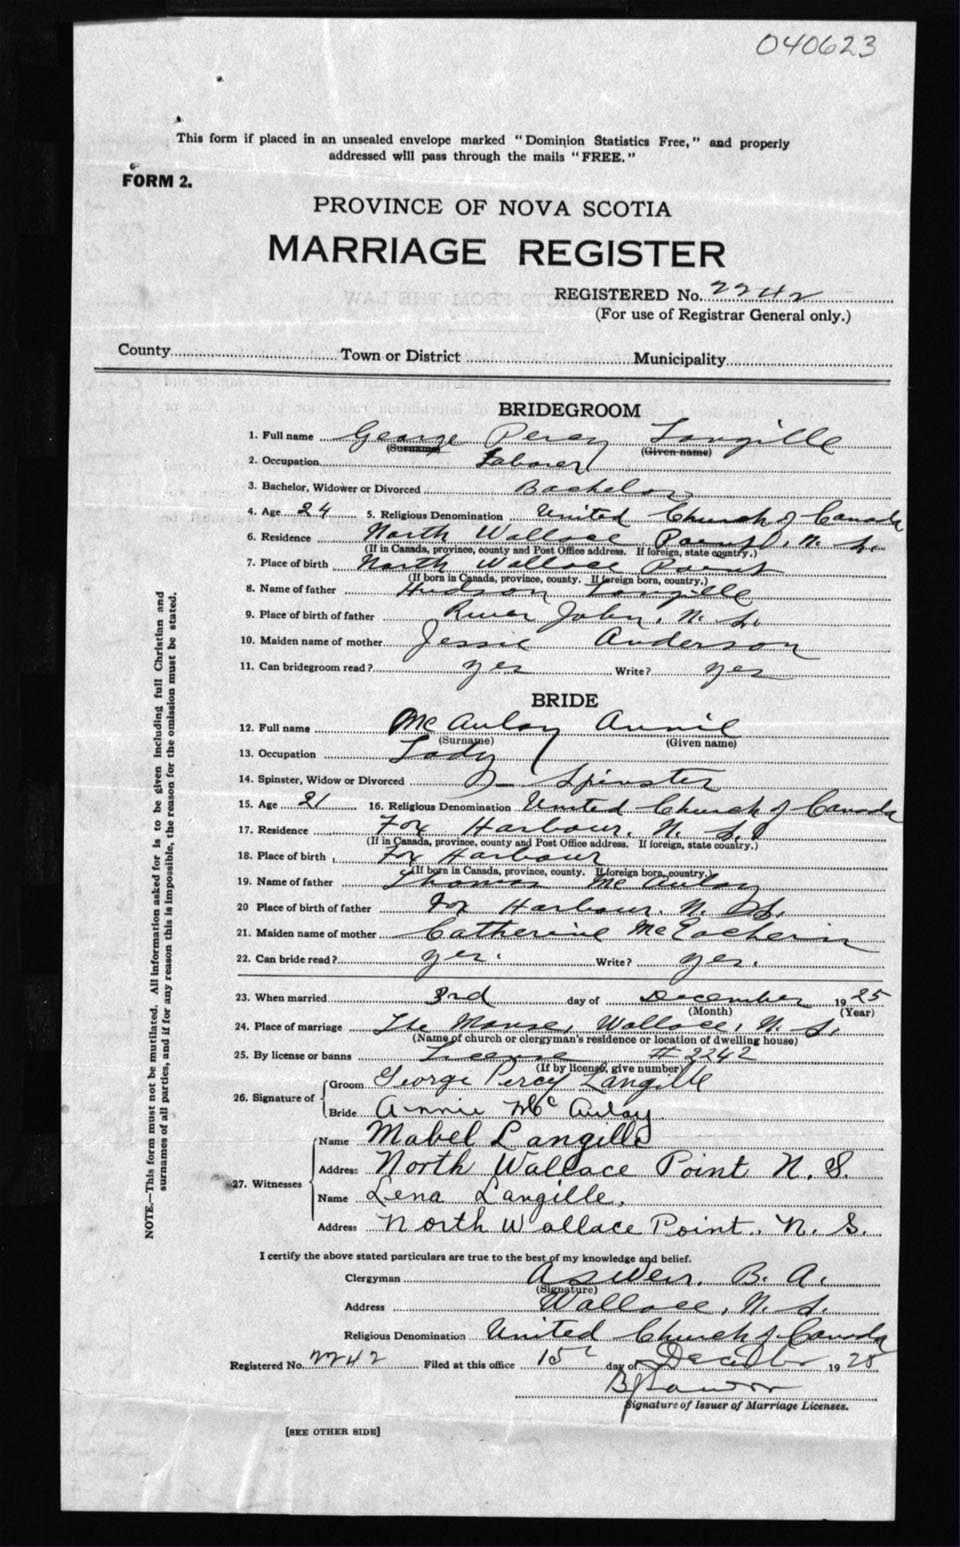 040623
This form if placed in an unsealed envelope marked "Dominion Statistics Free," and properly
addressed will pass through the mails "FREE."
FORM 2.
PROVINCE OF NOVA SCOTIA
MARRIAGE REGISTER
REGISTERED No. 2242
(For use of Registrar General only.)
County Town or District Municipality
BRIDEGROOM
1. Full name George Percy Langille
(Surname) (Given name)
2. Occupation Laborer
3. Bachelor, Widower or Divorced Bachelor
4. Age 24 5. Religious Denomination United Church of Canada
6. Residence North Wallace Point, N. S.
(If in Canada, province, county and Post Office address. If foreign, state country.)
7. Place of birth North Wallace Point
(If born in Canada, province, county. If foreign born, country.)
8. Name of father Hudson Langille
9. Place of birth of father River John, N. S.
10. Maiden name of mother Jessie Anderson
11. Can bridegroom read? yes Write? yes
BRIDE
12. Full name McAulay Annie
(Surname) (Given name)
13. Occupation Lady
14. Spinster, Widow or Divorced Spinster
15. Age 21 16. Religious Denomination United Church of Canada
17. Residence Fox Harbour, N. S.
(If in Canada, province, county and Post Office address. If foreign, state country.)
18. Place of birth Fox Harbour
(If born in Canada, province, county. If foreign born, country.)
19. Name of father Thomas McAulay
20 Place of birth of father Fox Harbour, N. S.
21. Maiden name of mother Catherine McEachern
22. Can bride read? yes. Write? yes.
23. When married 3rd day of December 1925
(Month) (Year)
24. Place of marriage The Manse, Wallace, N. S.
(Name of church or clergyman's residence or location of dwelling house)
25. By license or banns License # 2242
(If by license, give number)
26. Signature of Groom George Percy Langille
Bride Annie McAulay
27. Witnesses Name Mabel Langille
Address North Wallace Point N. S.
Name Lena Langille,
Address North Wallace Point. N. S.
I certify the above stated particulars are true to the best of my knowledge and belief.
Clergyman A S Weir. B. A.
(Signature)
Address Wallace, N. S.
Religious Denomination United Church of Canada
Registered No. 2242 Filed at this office 15 day of December 1925
Signature of Issuer of Marriage Licenses.
[SEE OTHER SIDE]
NOTE.—This form must not be mutilated. All information asked for is to be given including full Christian and
surnames of all parties, and if for any reason this is impossible, the reason for the omission must be stated.